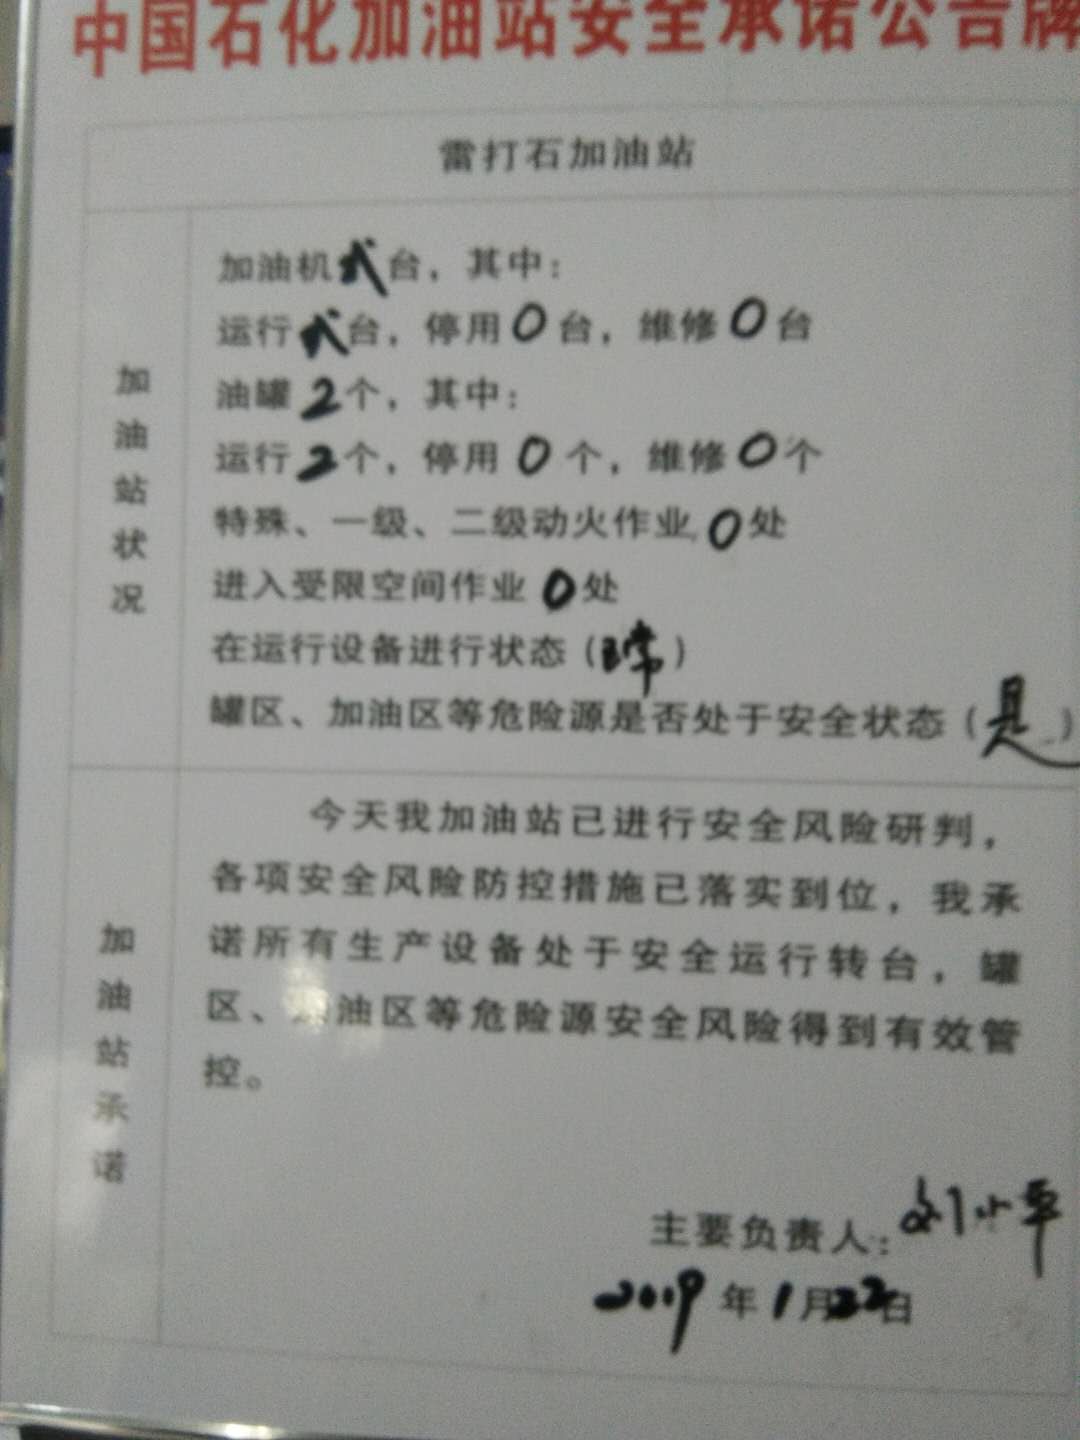 中国石化加油站安全承诺公告牌
雷打石加油站
加油站状况
加油机弍台，其中：
运行弍台，停用0台，维修0台
油罐2个，其中：
运行2个，停用0个，维修0个
特殊、一级、二级动火作业0处
进入受限空间作业0处
在运行设备进行状态（正常）
罐区、加油区等危险源是否处于安全状态（是）
加油站承诺
今天我加油站已进行安全风险研判，
各项安全风险防控措施已落实到位，我承
诺所有生产设备处于安全运行转台，罐
区、加油区等危险源安全风险得到有效管
控。
主要负责人：刘小平
2019年1月22日